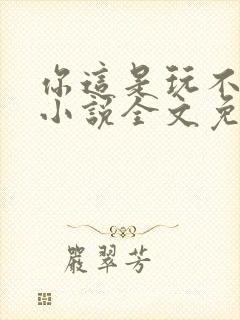 你這是玩不
小說全文免
嚴翠芳